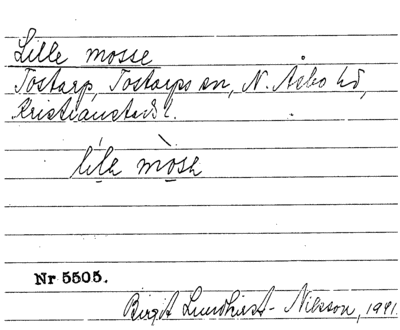 Lille mosse
Tostarp, Tostarps sn, N. Åsbo hd,
Kristianstads l.
lílɘ mòsɘ
Nr 5505.
Birgit Lundkvist-Nilsson, 1941.